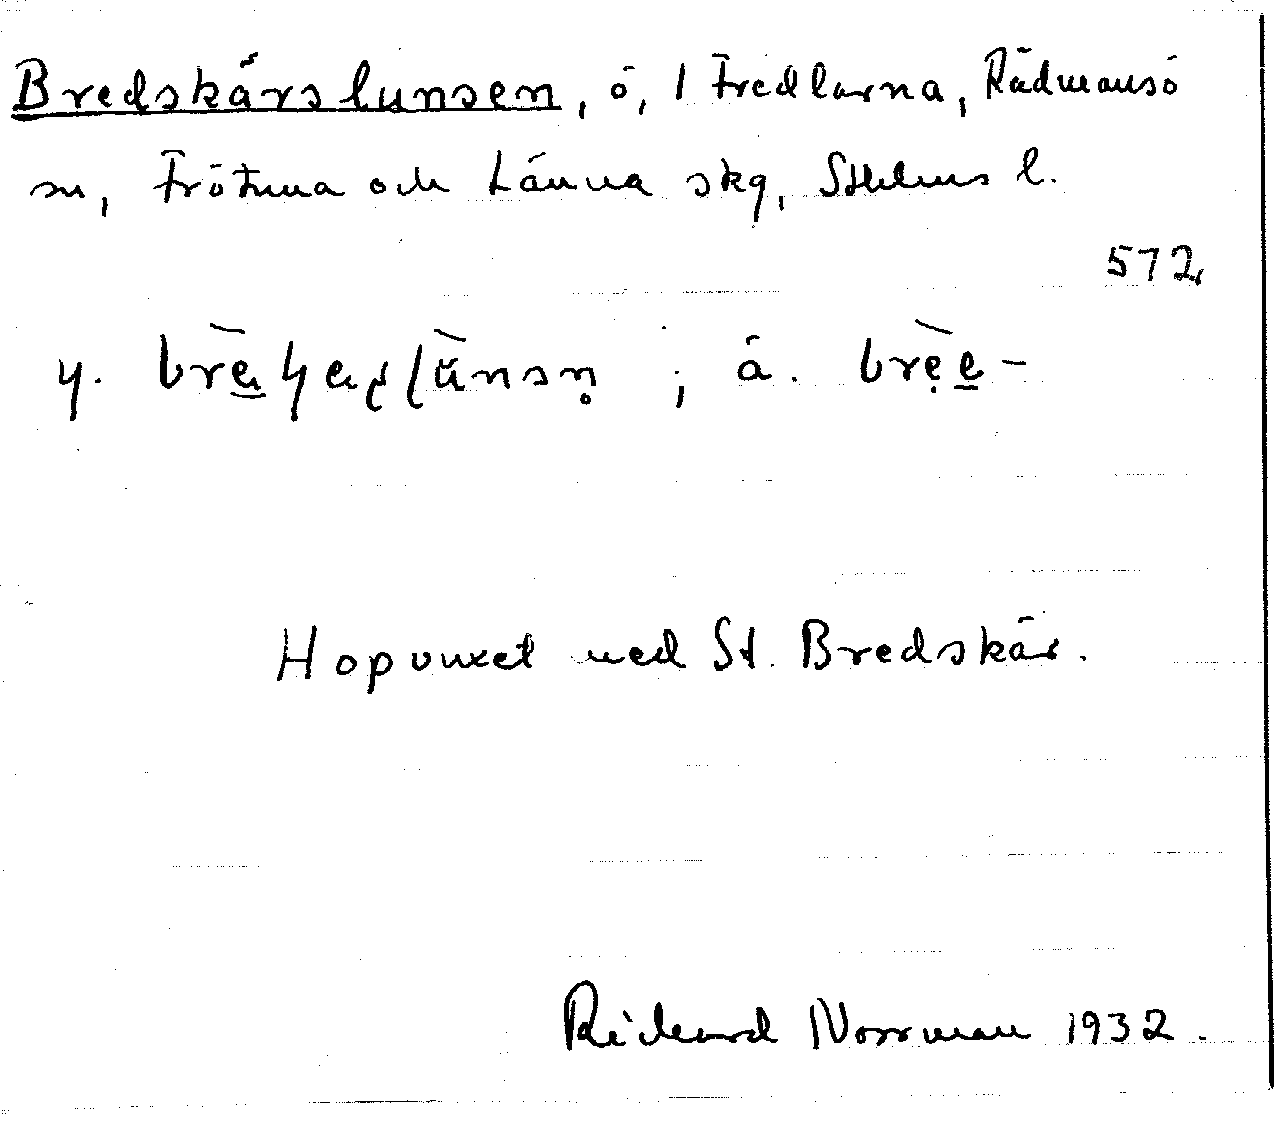 Bredskärslunsen, ö, i Fredlarna, Rädmansö
sn, Frötuna och Länna skg, Sthlms l.
572
y. ; ä.
Hopvuxet med St. Bredskär.
Richard Norrman 1932.